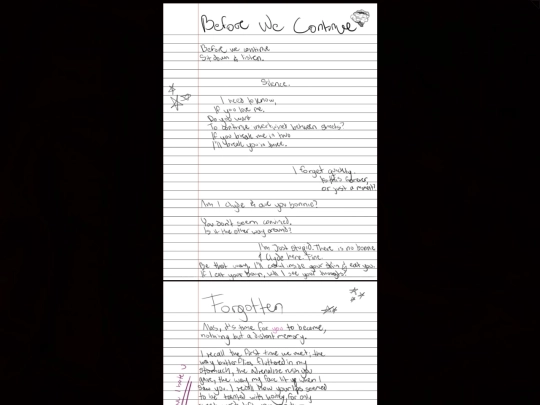 Before We Continue
Before we continue
Sit down & listen.
Silence.
I need to know,
If you love me.
Do you want
To continue intertwined between sheets?
If you break me in two
I'll break you in three.
I forget quickly.
Is this forever,
or just a moment?
Am I Clyde & are you Bonnie?
You don't seem convinced,
Is it the other way around?
I'm just stupid. There is no Bonnie
& Clyde here. Fine.
Be that way, I'll crawl inside your skin & eat you.
If I eat your brain, will I see your thoughts?
Forgotten
Alas, it's time for you to become,
nothing but a distant memory.
I recall the first time we met, the
way butterflies fluttered in my
stomach, the adrenaline rush you
gave, the way my face lit up when I
saw you. I recall how your lips seemed
to be tainted with honey, for only
I hate U